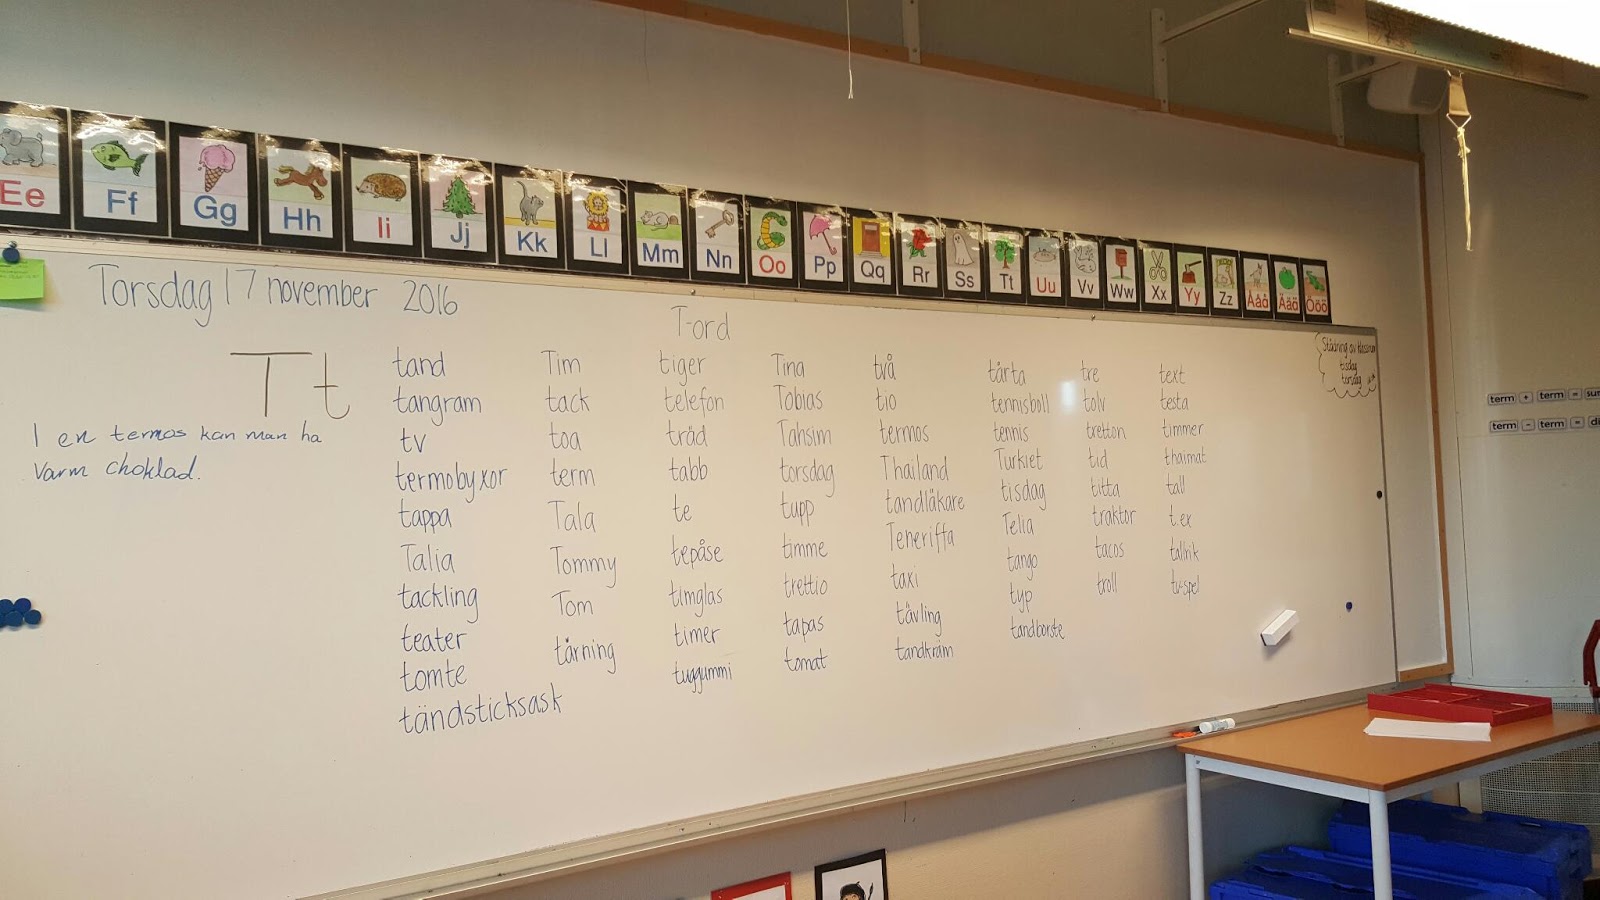 Ee Ff Gg Hh Ii Jj Kk Ll Mm Nn Oo Pp Qq Rr Ss Tt Uu Vv Ww Xx Yy Zz Åå Ää Öö
Torsdag 17 november 2016
T-ord
T t
I en termos kan man ha
varm choklad.
tand
tangram
tv
termobyxor
tappa
Talia
tackling
teater
tomte
tändsticksask
Tim
tack
toa
term
Tala
Tommy
Tom
tärning
tiger
telefon
träd
tabb
te
tepåse
timglas
timer
tuggummi
Tina
Tobias
Tahsim
torsdag
tupp
timme
trettio
tapas
tomat
två
tio
termos
Thailand
tandläkare
Teneriffa
taxi
tävling
tandkräm
tårta
tennisboll
tennis
Turkiet
tisdag
Telia
tango
typ
tandborste
tre
tolv
tretton
tid
titta
traktor
tacos
troll
text
testa
timmer
thaimat
tall
t.ex
tallrik
tv-spel
Städning av klassrum
tisdag
torsdag
term + term =
term - term =